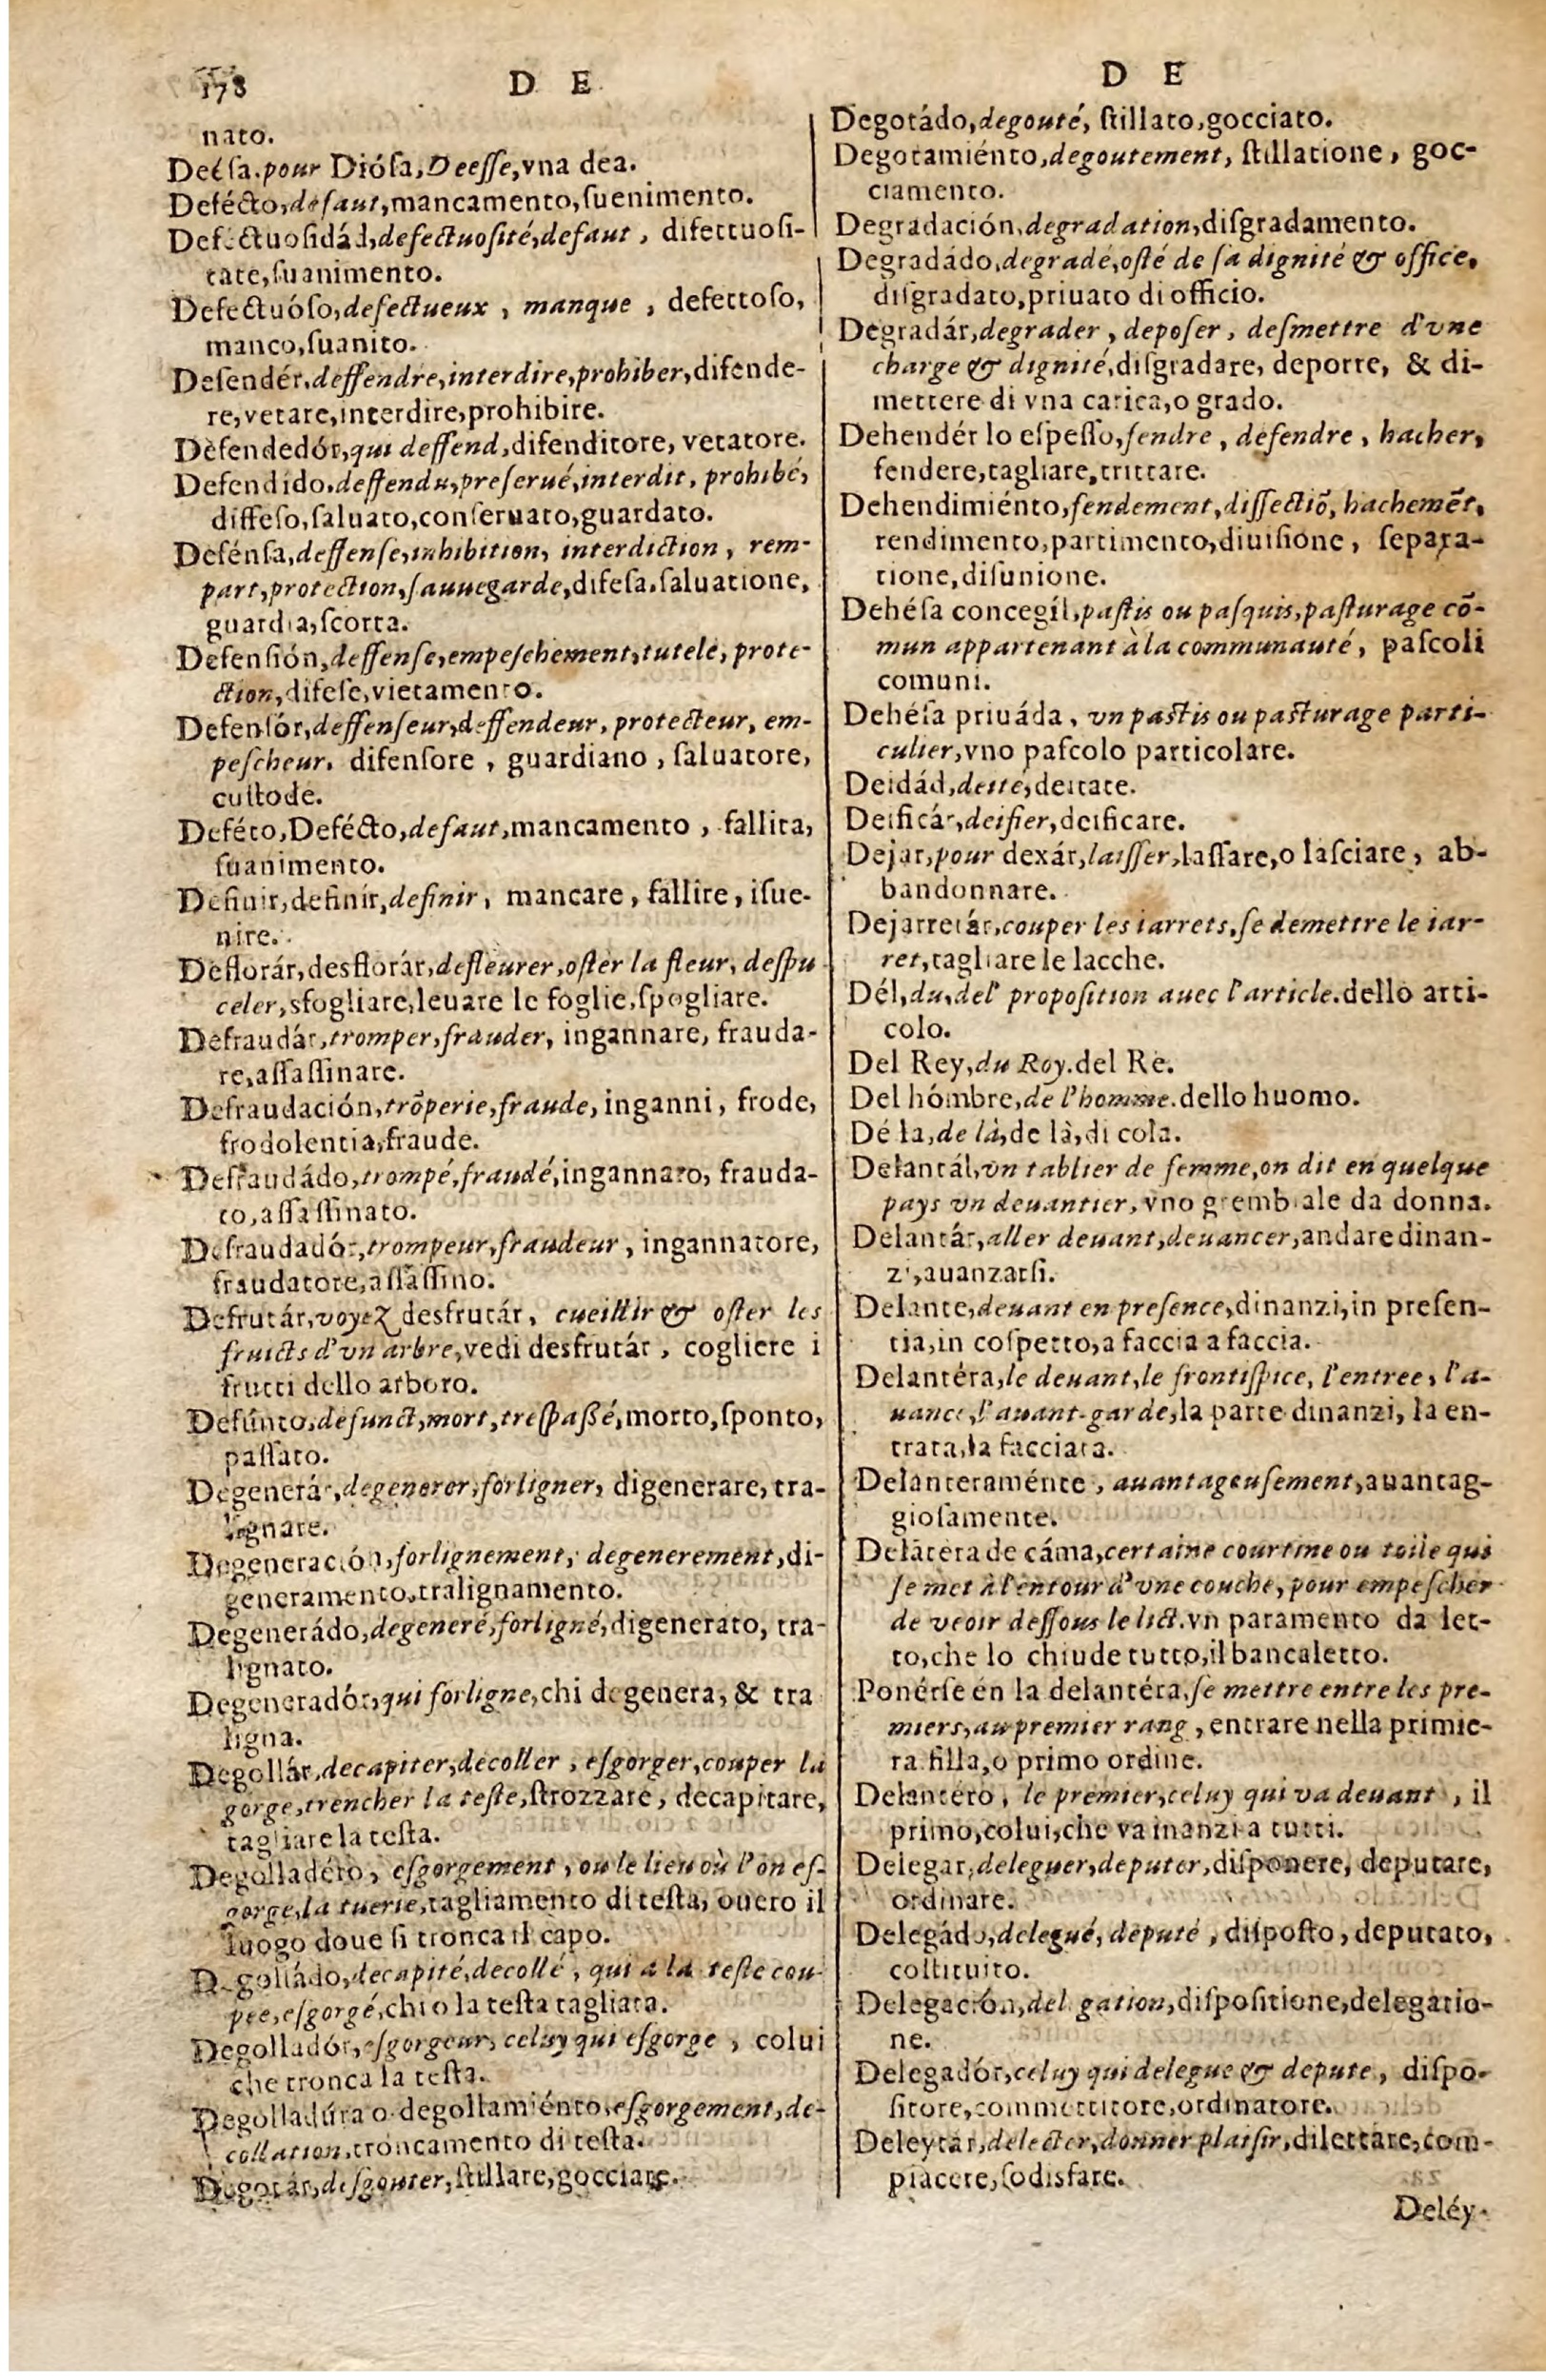 178
D E
nato.
Deesa. pour Diósa, Deesse, vna dea.
Deféćto, defaut, mancamento, suenimento.
Defectuosidád, defectuosité, defaut, difettuosi-
tate, suanimento.
Defectuóso, defectueux, manque, defettoso,
manco, suanito.
Defendér, deffendre, interdire, prohiber, difende-
re, vetare, interdire, prohibire.
Defendedór, qui deffend, difenditore, vetatore.
Defendído. deffendu, preserué, interdit, prohibé,
diffeso, saluato, conseruato, guardato.
Defénsa, deffense, inhibition, interdiction, rem-
part, protection, sauuegarde, difesa, saluatione,
guardia, scorta.
Defensión, deffense, empeschement, tutele, prote-
ction, difese, vietamento.
Defensór, deffenseur, deffendeur, protecteur, em-
pescheur. difensore, guardiano, saluatore,
custode.
Deféto, Defécto, defaut, mancamento, fallita,
suanimento.
Definir, definír, definir, mancare, fallire, isue-
nire.
Deflorár, desflorár, defleurer, oster la fleur, despu
celer, sfogliare, leuare le foglie, spogliare.
Defraudár, tromper, frauder, ingannare, frauda-
re, assassinare.
Defraudación, trõperie, fraude, inganni, frode,
frodolentia, fraude.
Defraudádo, trompé, fraudé, ingannato, frauda-
to, assassinato.
Defraudadór, trompeur, fraudeur, ingannatore,
fraudatore, assassino.
Defrutár, voyez desfrutár, cueillir & oster les
fruicts d'vn arbre, vedi desfrutár, cogliere i
frutti dello arboro.
Defúnto, defunct, mort, trespaßé, morto, sponto,
passato.
Degenerár, degenerer, forligner, digenerare, tra-
lignare.
Degeneración, forlignement, degenerement, di-
generamento, tralignamento.
Degenerádo, degeneré, forligné, digenerato, tra-
lignato.
Degeneradór, qui forligne, chi degenera, & tra
ligna.
Degollár, decapiter, decoller, esgorger, couper la
gorge, trencher la teste, strozzare, decapitare,
tagliare la testa.
Degolladéro, esgorgement, ou le lieu où l'on es-
gorge, la tuerie, tagliamento di testa, ouero il
luogo doue si tronca il capo.
Degolládo, decapité, decollé, qui a la teste cou-
pee, esgorgé, chi o la testa tagliata.
Degolladór, esgorgeur, celuy qui esgorge, colui
che tronca la testa.
Degolladúra o degollamiénto, esgorgement, de-
collation, troncamento di testa.
Degotár, desgouter, stillare, gocciare.
D E
Degotádo, degouté, stillato, gocciato.
Degotamiénto, degoutement, stillatione, goc-
ciamento.
Degradación, degradation, disgradamento.
Degradádo, degradé, osté de sa dignité & office,
disgradato, priuato di officio.
Degradár, degrader, deposer, desmettre d'vne
charge & dignité, disgradare, deporre, & di-
mettere di vna carica, o grado.
Dehendér lo espesso, fendre, defendre, hacher,
fendere, tagliare, trittare.
Dehendimiénto, fendement, dissectiõ, hachemẽt,
rendimento, partimento, diuisione, separa-
tione, disunione.
Dehésa concegíl, pastis ou pasquis, pasturage cõ-
mun appartenant à la communauté, pascoli
comuni.
Dehésa priuáda, vn pastis ou pasturage parti-
culier, vno pascolo particolare.
Deidád, deité, deitate.
Deificár, deifier, deificare.
Dejar, pour dexár, laisser, lassare, o lasciare, ab-
bandonnare.
Dejarretár, couper les iarrets, se demettre le iar-
ret, tagliare le lacche.
Dél, du, del' proposition auec l'article. dello arti-
colo.
Del Rey, du Roy. del Re.
Del hómbre, de l'homme. dello huomo.
Dé la, de là, de là, di cola.
Delantál, vn tablier de femme, on dit en quelque
pays vn deuantier, vno grembiale da donna.
Delantár, aller deuant, deuancer, andare dinan-
zi, auanzarsi.
Delante, deuant en presence, dinanzi, in presen-
tia, in cospetto, a faccia a faccia.
Delantéra, le deuant, le frontispice, l'entree, l'a-
uance, l'auant-garde, la parte dinanzi, la en-
trata, la facciata.
Delanteraménte, auantageusement, auantag-
giosamente.
Delãtera de cáma, certaine courtine ou toile qui
se met à l'entour d'vne couche, pour empescher
de veoir dessous le lict. vn paramento da let-
to, che lo chiude tutto, il bancaletto.
Ponérse én la delantéra, se mettre entre les pre-
miers, au premier rang, entrare nella primie-
ra filla, o primo ordine.
Delantéro, le premier, celuy qui va deuant, il
primo, colui, che va inanzi a tutti.
Delegar, deleguer, deputer, disponere, deputare,
ordinare.
Delegádo, delegué, deputé, disposto, deputato,
costituito.
Delegación, delegation, dispositione, delegatio-
ne.
Delegadór, celuy qui delegue & depute, dispo-
sitore, commettitore, ordinatore.
Deleytár, delecter, donner plaisir, dilettare, com-
piacere, sodisfare.
Deléy-